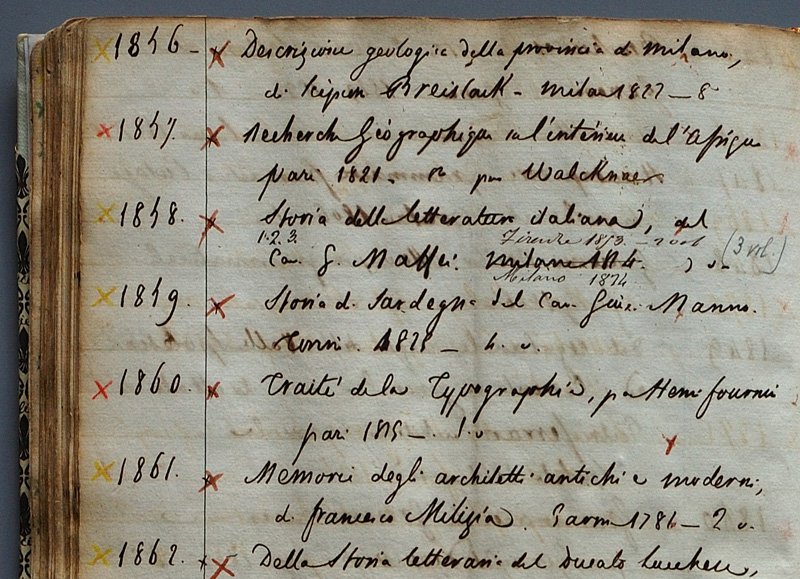 1856 - Descrizione geologica della provincia di Milano,
di Scipion Breislack - Milan 1822 - 8
1857. Recherch Géographique sur l'intérieur de l'Afrique
pari 1821 - 8 par Walcknaer
1858. Storia della letteratura italiana, del
1. 2. 3. Firenze 1853. - 2 vol
Cav. G. Maffei. Milano 1814. 3 v. (3 vol.)
Milano 1834
1859. Storia di Sardegna del Cav. Gius. Manno.
Torin. 1825 - 4. v.
1860. Traité de la Typographie, par Henri fournier
pari 1825 - 1. v
1861. Memorie degli architetti antichi e moderni,
di francesco Milizia. Parm 1781 - 2 v.
1862. Della Storia letteraria del Ducato lucchese,